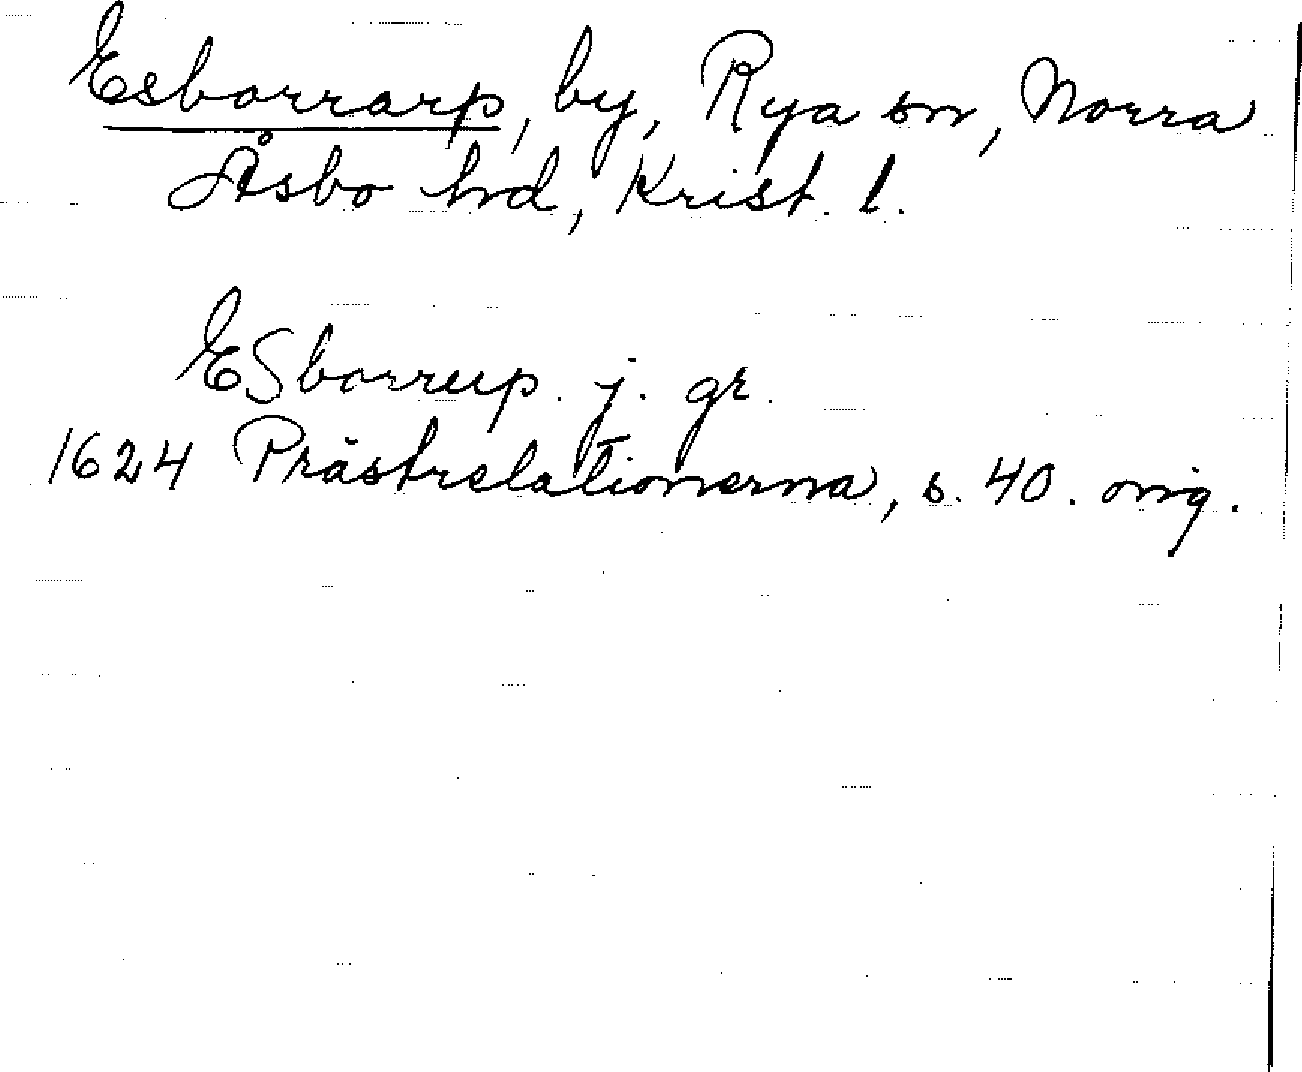 Esborrarp, by, Rya sn, Norra
Åsbo hrd, Krist. l.
ESborrup. j. gr.
1624 Prästrelationerna, s. 40. orig.